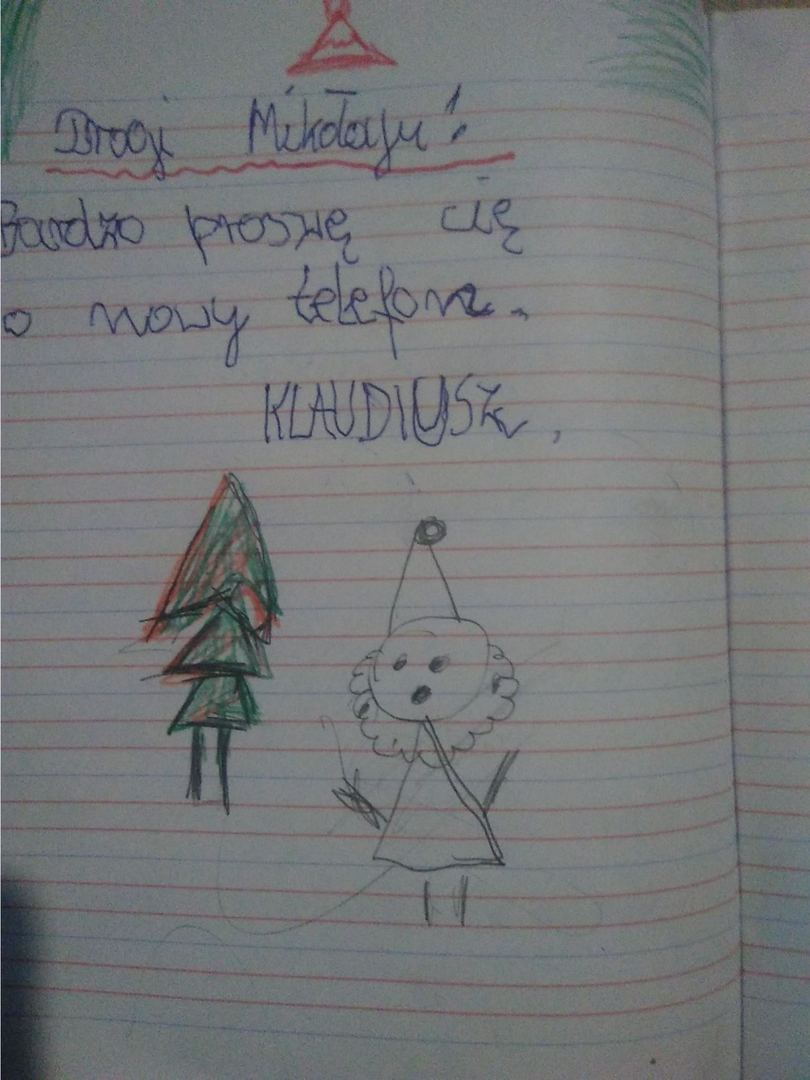 Drogi Mikołaju!
Bardzo proszę cię
o nowy telefon.
KLAUDIUSZ,